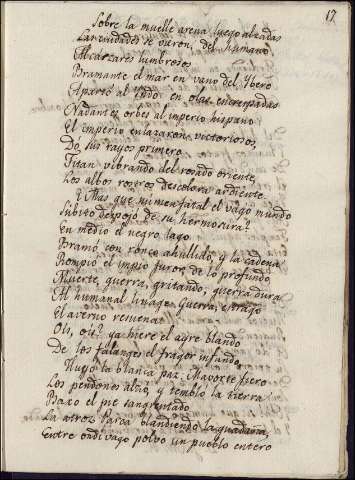 17
Sobre la muelle arena luego alzadas
Las ciudades se vieron, del humano
Alcázares lumbrosos
Bramante el mar en vano del Ybero
Apartó al Yndo: en olas encrespadas
Nadantes orbes al imperio hispano
El imperio enlazaron victoriosos,
Dó sus rayos primero
Titan vibrando del rosado oriente
Los albos rostros descolora ardiente.
¿Mas que numen fatal el vago mundo
Súbito despojó de su hermosura?
En medio el negro lago
Bramó con ronco ahullido, y la cadena
Rompió el impio furor, de lo profundo
Muerte, guerra, gritando, guerra dura
Al humanal linage: guerra, estrago
El averno resuena.
Ois, ois? ya hiere el ayre blando
De las falanges el fragor infando.
Huyó la blanca paz: Mavorte fiero
Los pendones alzó, y tembló la tierra
Baxo el pie sangrentado
La atroz Parca blandiendo la guadaña,
Entre ondivago polvo un pueblo entero